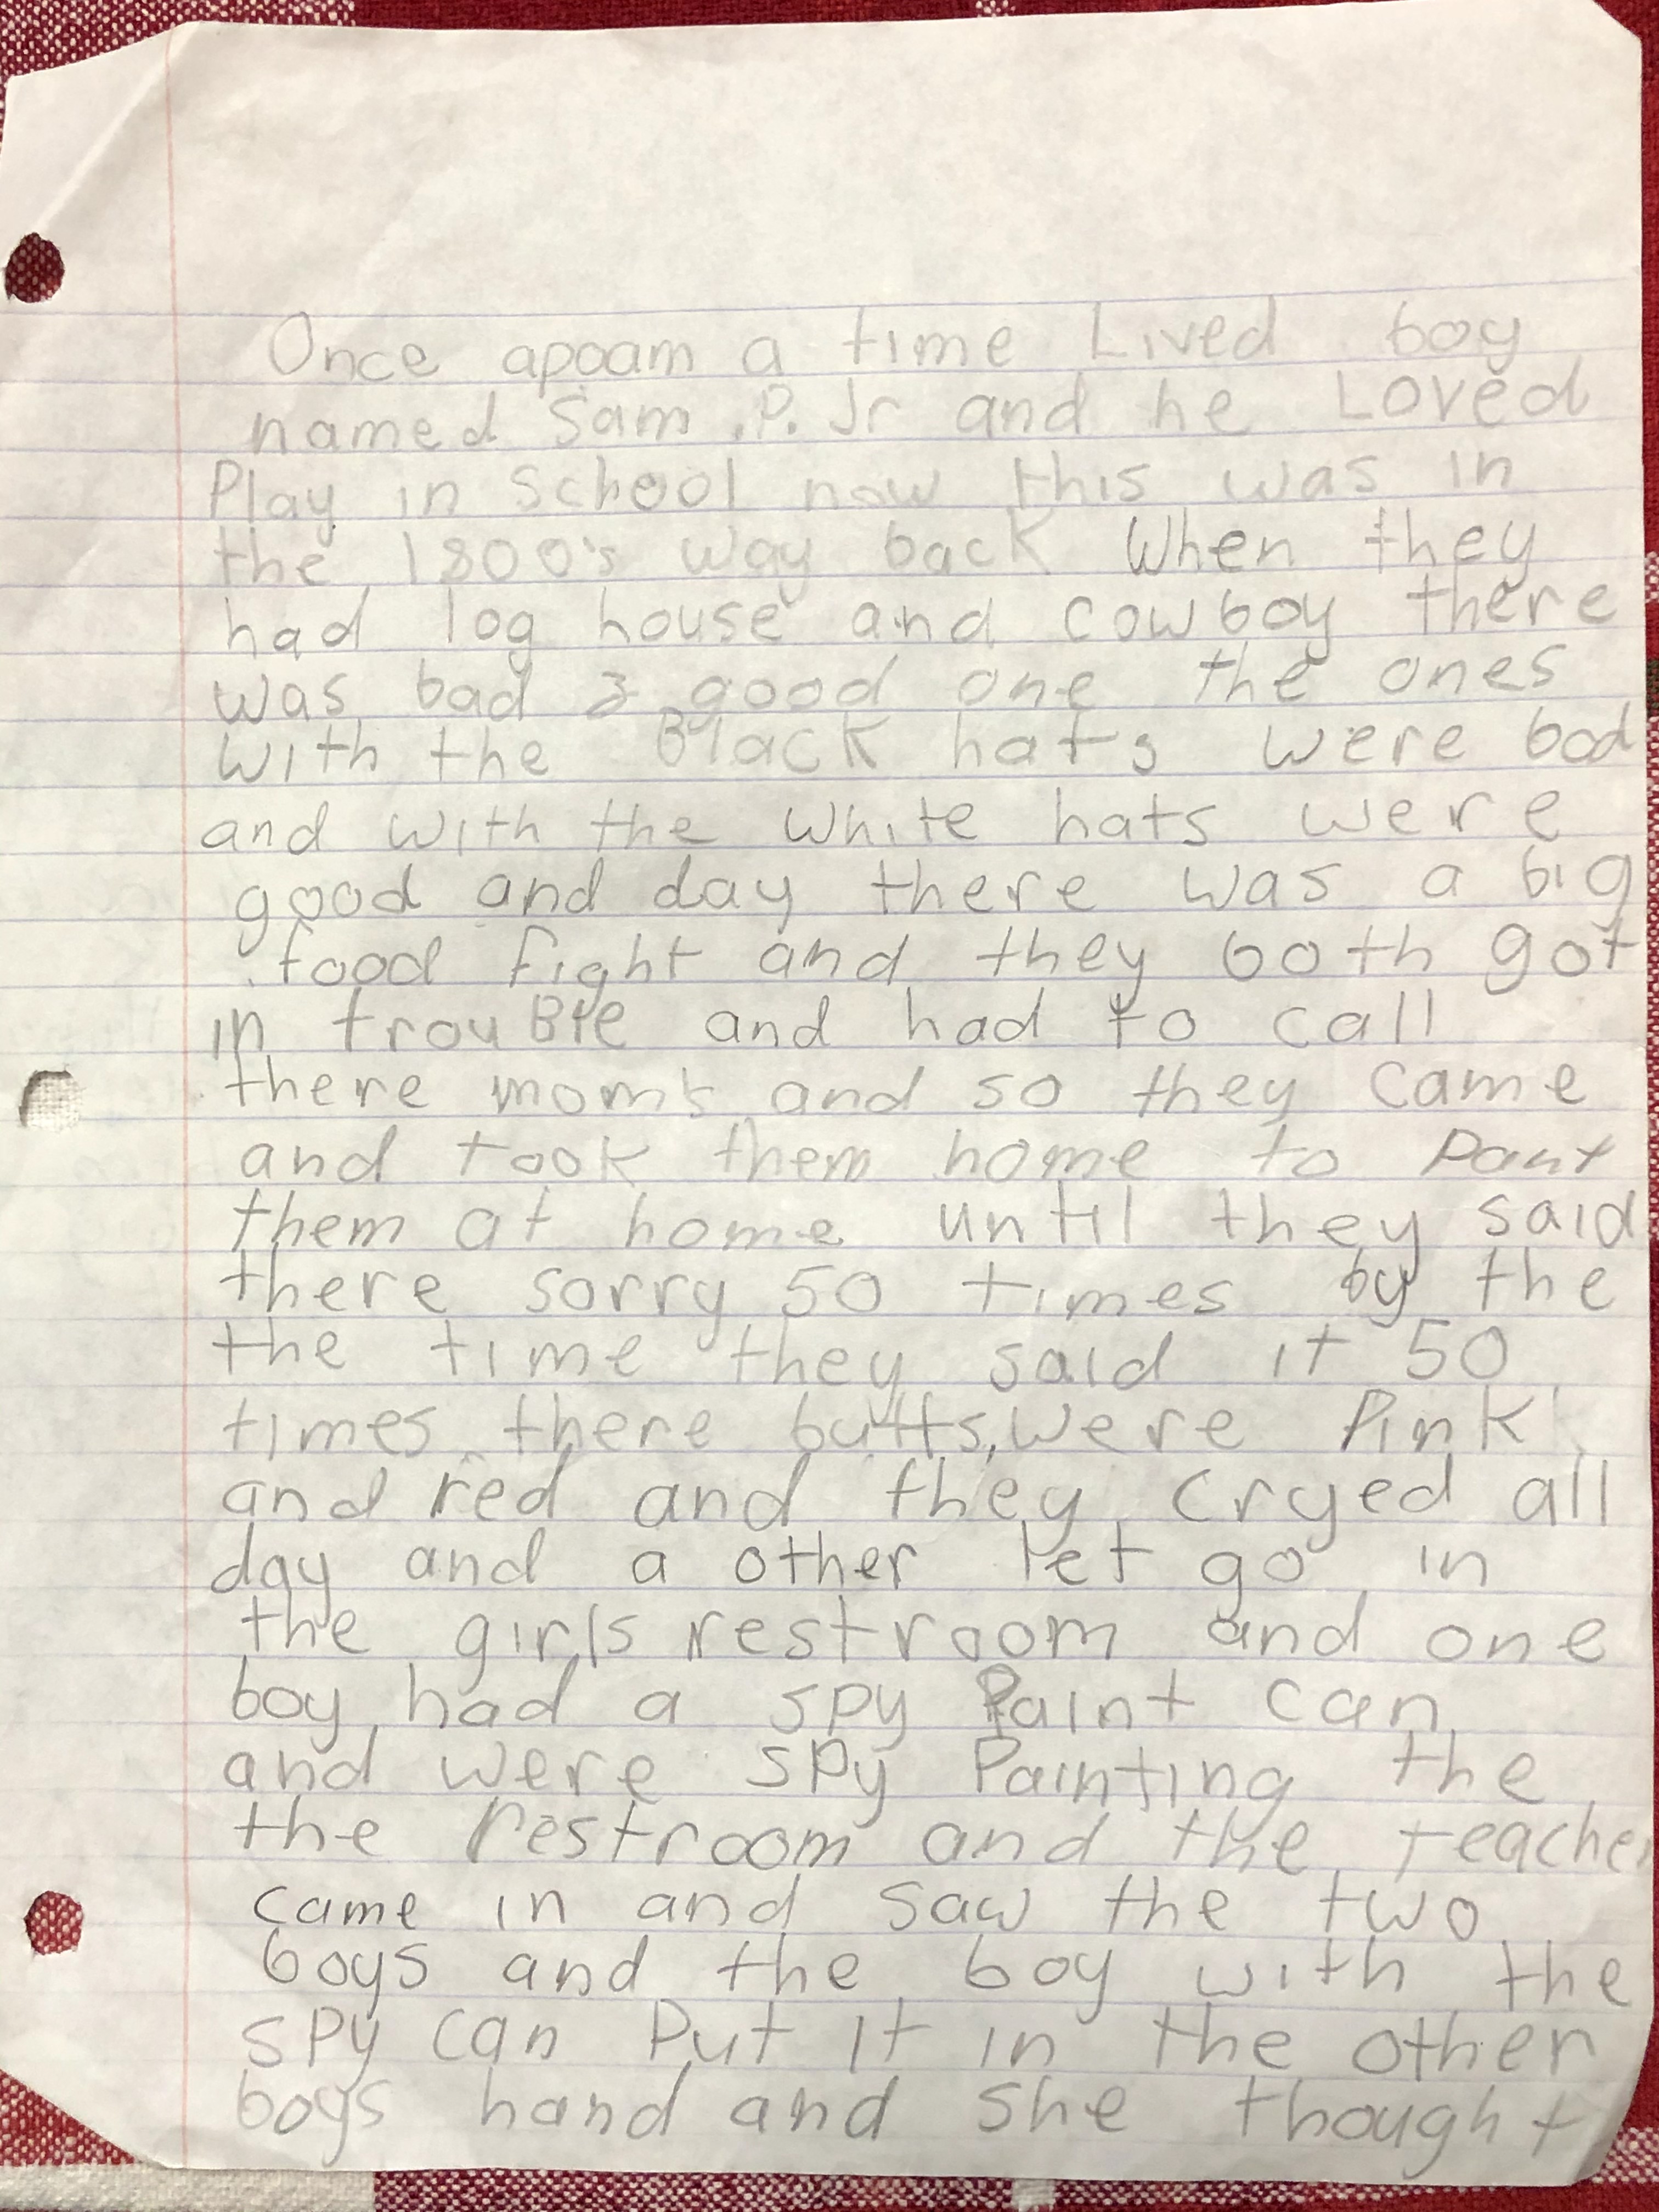 Once apoam a time Lived boy
named Sam .P. Jr and he Loved
Play in School now this was in
the 1800's way back When they
had log house and cowboy there
was bad & good one the ones
with the Black hats were bad
and with the white hats were
good and day there was a big
food fight and they both got
in trouBle and had to call
there mom's and so they came
and took them home to
them at home until they said
there sorry 50 times by the
the time they said it 50
times there butts, were Pink
and red and they cryed all
day and a other let go in
the girls restroom and one
boy had a spy Paint can
and were spy Painting the
the restroom and the teacher
came in and saw the two
boys and the boy with the
spy can Put it in the other
boys hand and she thought